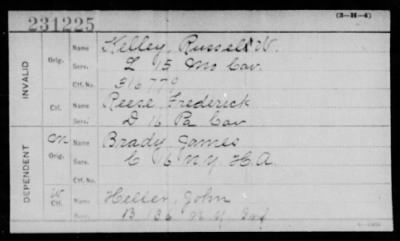 231225
(3-H-4)
INVALID
Orig. Name Kelley, Russell W.
Serv. L 15 Mo Cav.
Ctf. No. 516770
Ctf. Name Reese, Frederick
Serv. D 16 Pa Cav
DEPENDENT
M Orig. Name Brady, James
Serv. C 16 N.Y. H.A.
Ctf. No.
W Ctf. Name Heller, John
Serv. B 136 N.Y. Inf